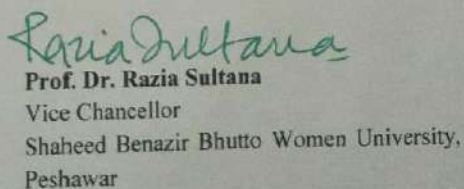 Razia Sultana
Prof. Dr. Razia Sultana
Vice Chancellor
Shaheed Benazir Bhutto Women University,
Peshawar